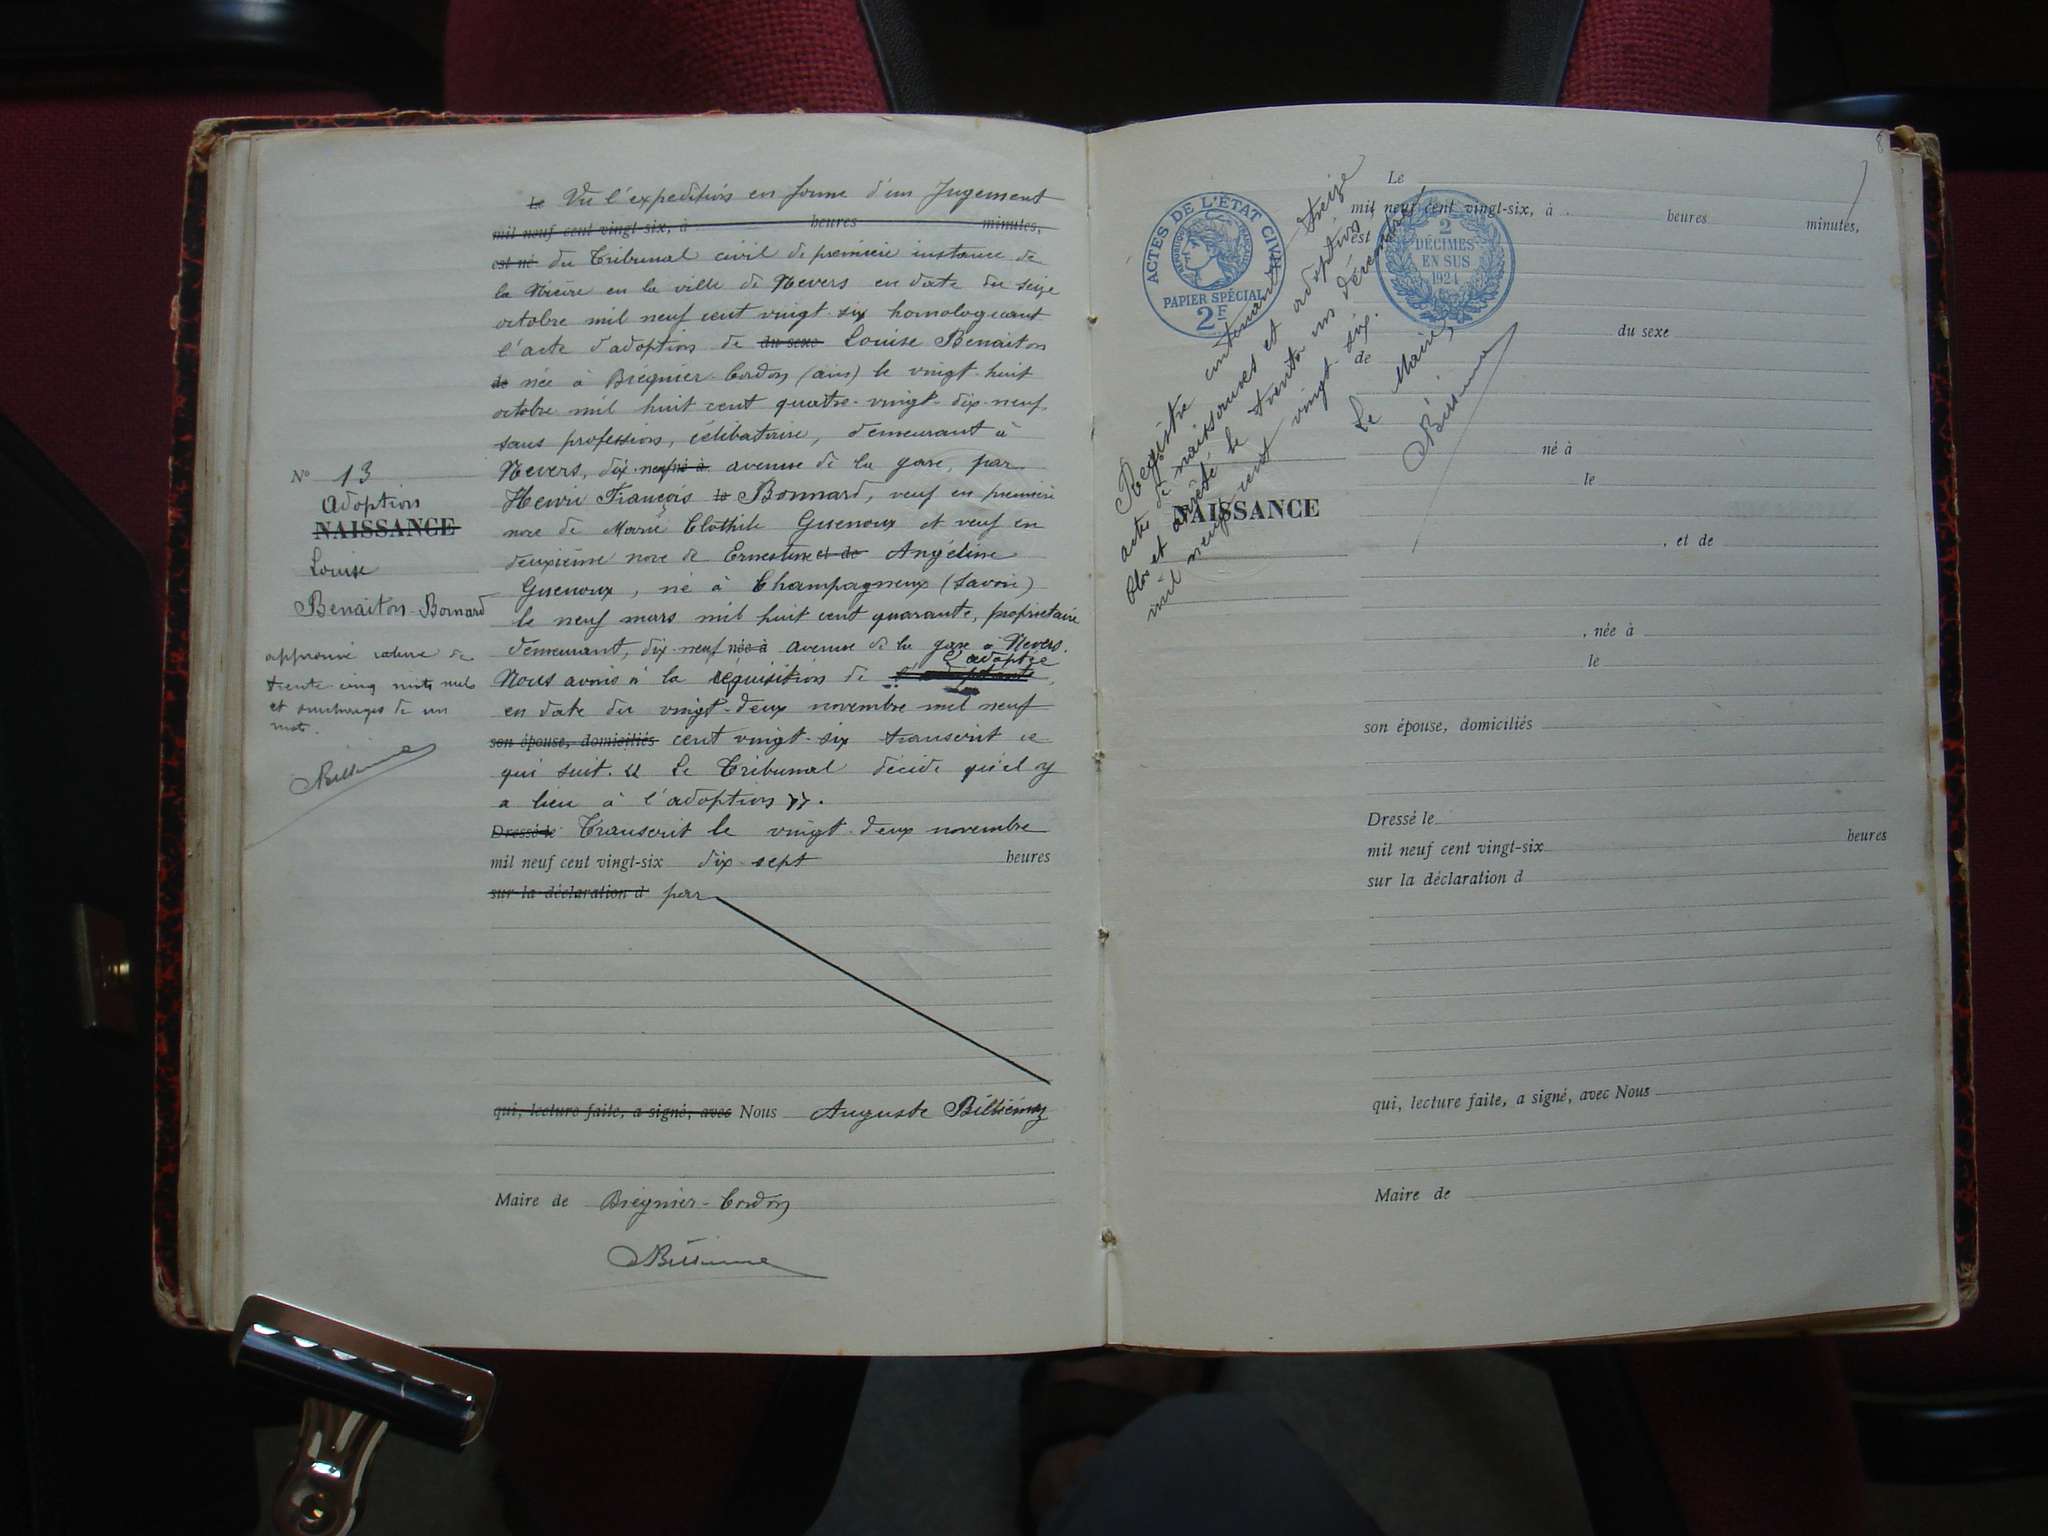 N° 13
Adoption
NAISSANCE
Louise
Benaiton-Bonnard
approuvé rature de
trente cinq mots nuls
et surcharges de un
mot.
le Vu l'expédition en forme d'un Jugement
mil neuf cent vingt-six, à heures minutes,
est né du Tribunal civil de première instance de
la Nièvre en la ville de Nevers en date du seize
octobre mil neuf cent vingt-six homologuant
l'acte d'adoption de du sexe Louise Benaiton
de née à Brégnier-Cordon (ain) le vingt-huit
octobre mil huit cent quatre-vingt-dix-neuf
sans profession, célibataire, demeurant à
Nevers, dix-neuf né à avenue de la gare, par
Henri François le Bonnard, veuf en première
noce de Marie Clothile Guenoux et veuf en
deuxième noce de Ernestine et de Angéline
Guenoux, né à Champagneux (Savoie)
le neuf mars mil huit cent quarante, propriétaire
demeurant, dix-neuf née à avenue de la gare à Nevers.
l'adoptée
Nous avons à la réquisition de
en date du vingt-deux novembre mil neuf
son épouse, domiciliés cent vingt-six transcrit ce
qui suit. « Le Tribunal décide qu'il y
a lieu à l'adoption ».
Dressé le Transcrit le vingt-deux novembre
mil neuf cent vingt-six dix-sept heures
sur la déclaration d par
qui, lecture faite, a signé, avec Nous Auguste Billiémaz
Maire de Brégnier-Cordon
Billiémaz
8
ACTES DE L'ÉTAT CIVIL
RÉPUBLIQUE FRANÇAISE
PAPIER SPÉCIAL
2F
2
DÉCIMES
EN SUS
1924
Registre contenant treize
actes de naissances et adoption,
Clos et arrêté le trente un décembre
mil neuf cent vingt-six.
Le Maire,
NAISSANCE
Le
mil neuf cent vingt-six, à heures minutes,
est
du sexe
de
né à
le
, et de
, née à
le
son épouse, domiciliés
Dressé le
mil neuf cent vingt-six heures
sur la déclaration d
qui, lecture faite, a signé, avec Nous
Maire de